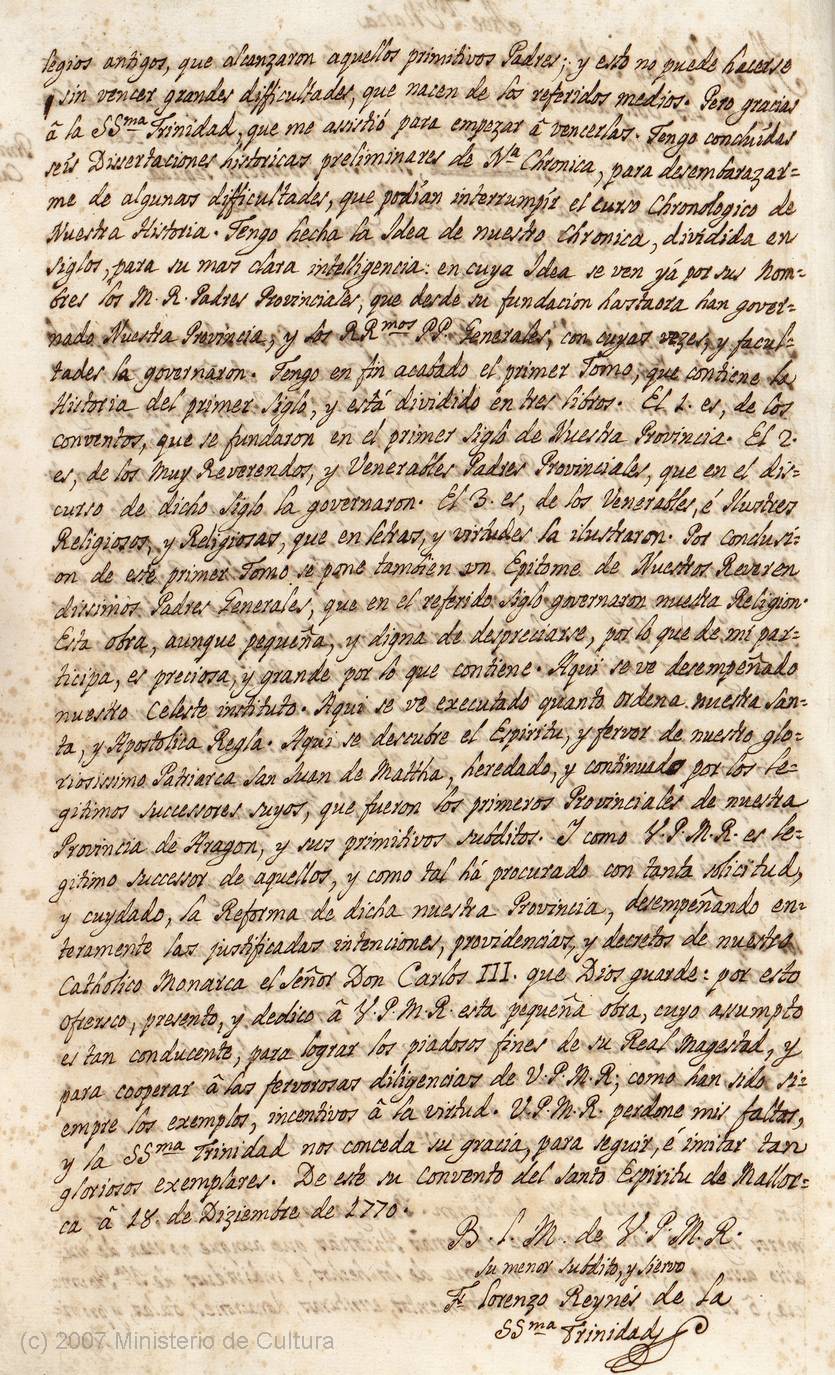 legios antigos, que alcanzaron aquellos primitivos Padres; y esto no puede hacerse
sin vencer grandes difficultades, que nacen de los referidos medios. Pero gracias
â la SS.ma Trinidad, que me assistió para empezar â vencerlas. Tengo concluídas
seis Dissertaciones historicas preliminares de N.a Chronica, para desembarazar=
me de algunas difficultades, que podían interrumpír el curso Chronologico de
Nuestra Historia. Tengo hecha la Idea de nuestra Chronica, dividida en
siglos, para su mas clara intelligencia: en cuya Idea se ven yá por sus Nom=
bres los M. R. Padres Provinciales, que desde su fundacion hastaora han gover=
nado Nuestra Provincia, y los RR.mos PP. Generales, con cuyas vezes, y facul=
tades la governaron. Tengo en fin acabado el primer Tomo, que contiene la
Historia del primer Siglo, y está dividido en tres libros. El 1. es, de los
conventos, que se fundaron en el primer siglo de Nuestra Provincia. El 2.
es, de los Muy Reverendos, y Venerables Padres Provinciales, que en el dis=
curso de dicho Siglo la governaron. El 3. es, de los Venerables, é Ilustres
Religiosos, y Religiosas, que en letras, y virtudes la ilustraron. Por conclusi=
on de este primer Tomo se pone tambien vn Epitome de Nuestros Reveren
dissimos Padres Generales, que en el referido Siglo governaron nuestra Religion.
Esta obra, aunque pequeña, y digna de despreciarse, por lo que de mi par=
ticipa, es preciosa, y grande por lo que contiene. Aqui se ve desempeñado
nuestro Celeste instituto. Aqui se ve executado quanto ordena nuestra San=
ta, y Apostolica Regla. Aqui se descubre el Espiritu, y fervor de nuestro glo=
riosissimo Patriarca San Juan de Mattha, heredado, y continuado por los le=
gitimos successores suyos, que fueron los primeros Provinciales de nuestra
Provincia de Aragon, y sus primitivos subditos. Y como V. P. M. R. es le=
gitimo successor de aquellos, y como tal há procurado con tanta solicitud,
y cuydado, la Reforma de dicha nuestra Provincia, desempeñando en=
teramente las justificadas intenciones, providencias, y decretos de nuestro
Catholico Monarca el Señor Don Carlos III. que Dios guarde: por esto
ofresco, presento, y dedico â V. P. M. R. esta pequeña obra, cuyo assumpto
es tan conducente, para lograr los piadosos fines de su Real Magestad, y
para cooperar â las fervorosas diligencias de V. P. M. R; como han sido si=
empre los exemplos, incentivos â la virtud. V. P. M. R. perdone mis faltas,
y la SS.ma Trinidad nos conceda su gracia, para seguir, é imitar tan
gloriosos exemplares. De este su Convento del Santo Espiritu de Mallor=
ca â 18. de Diziembre de 1770.
B. L. M. de V. P. M. R.
su menor subdito, y siervo
Fr. Lorenzo Reynés de la
SS.ma Trinidad
(c) 2007 Ministerio de Cultura